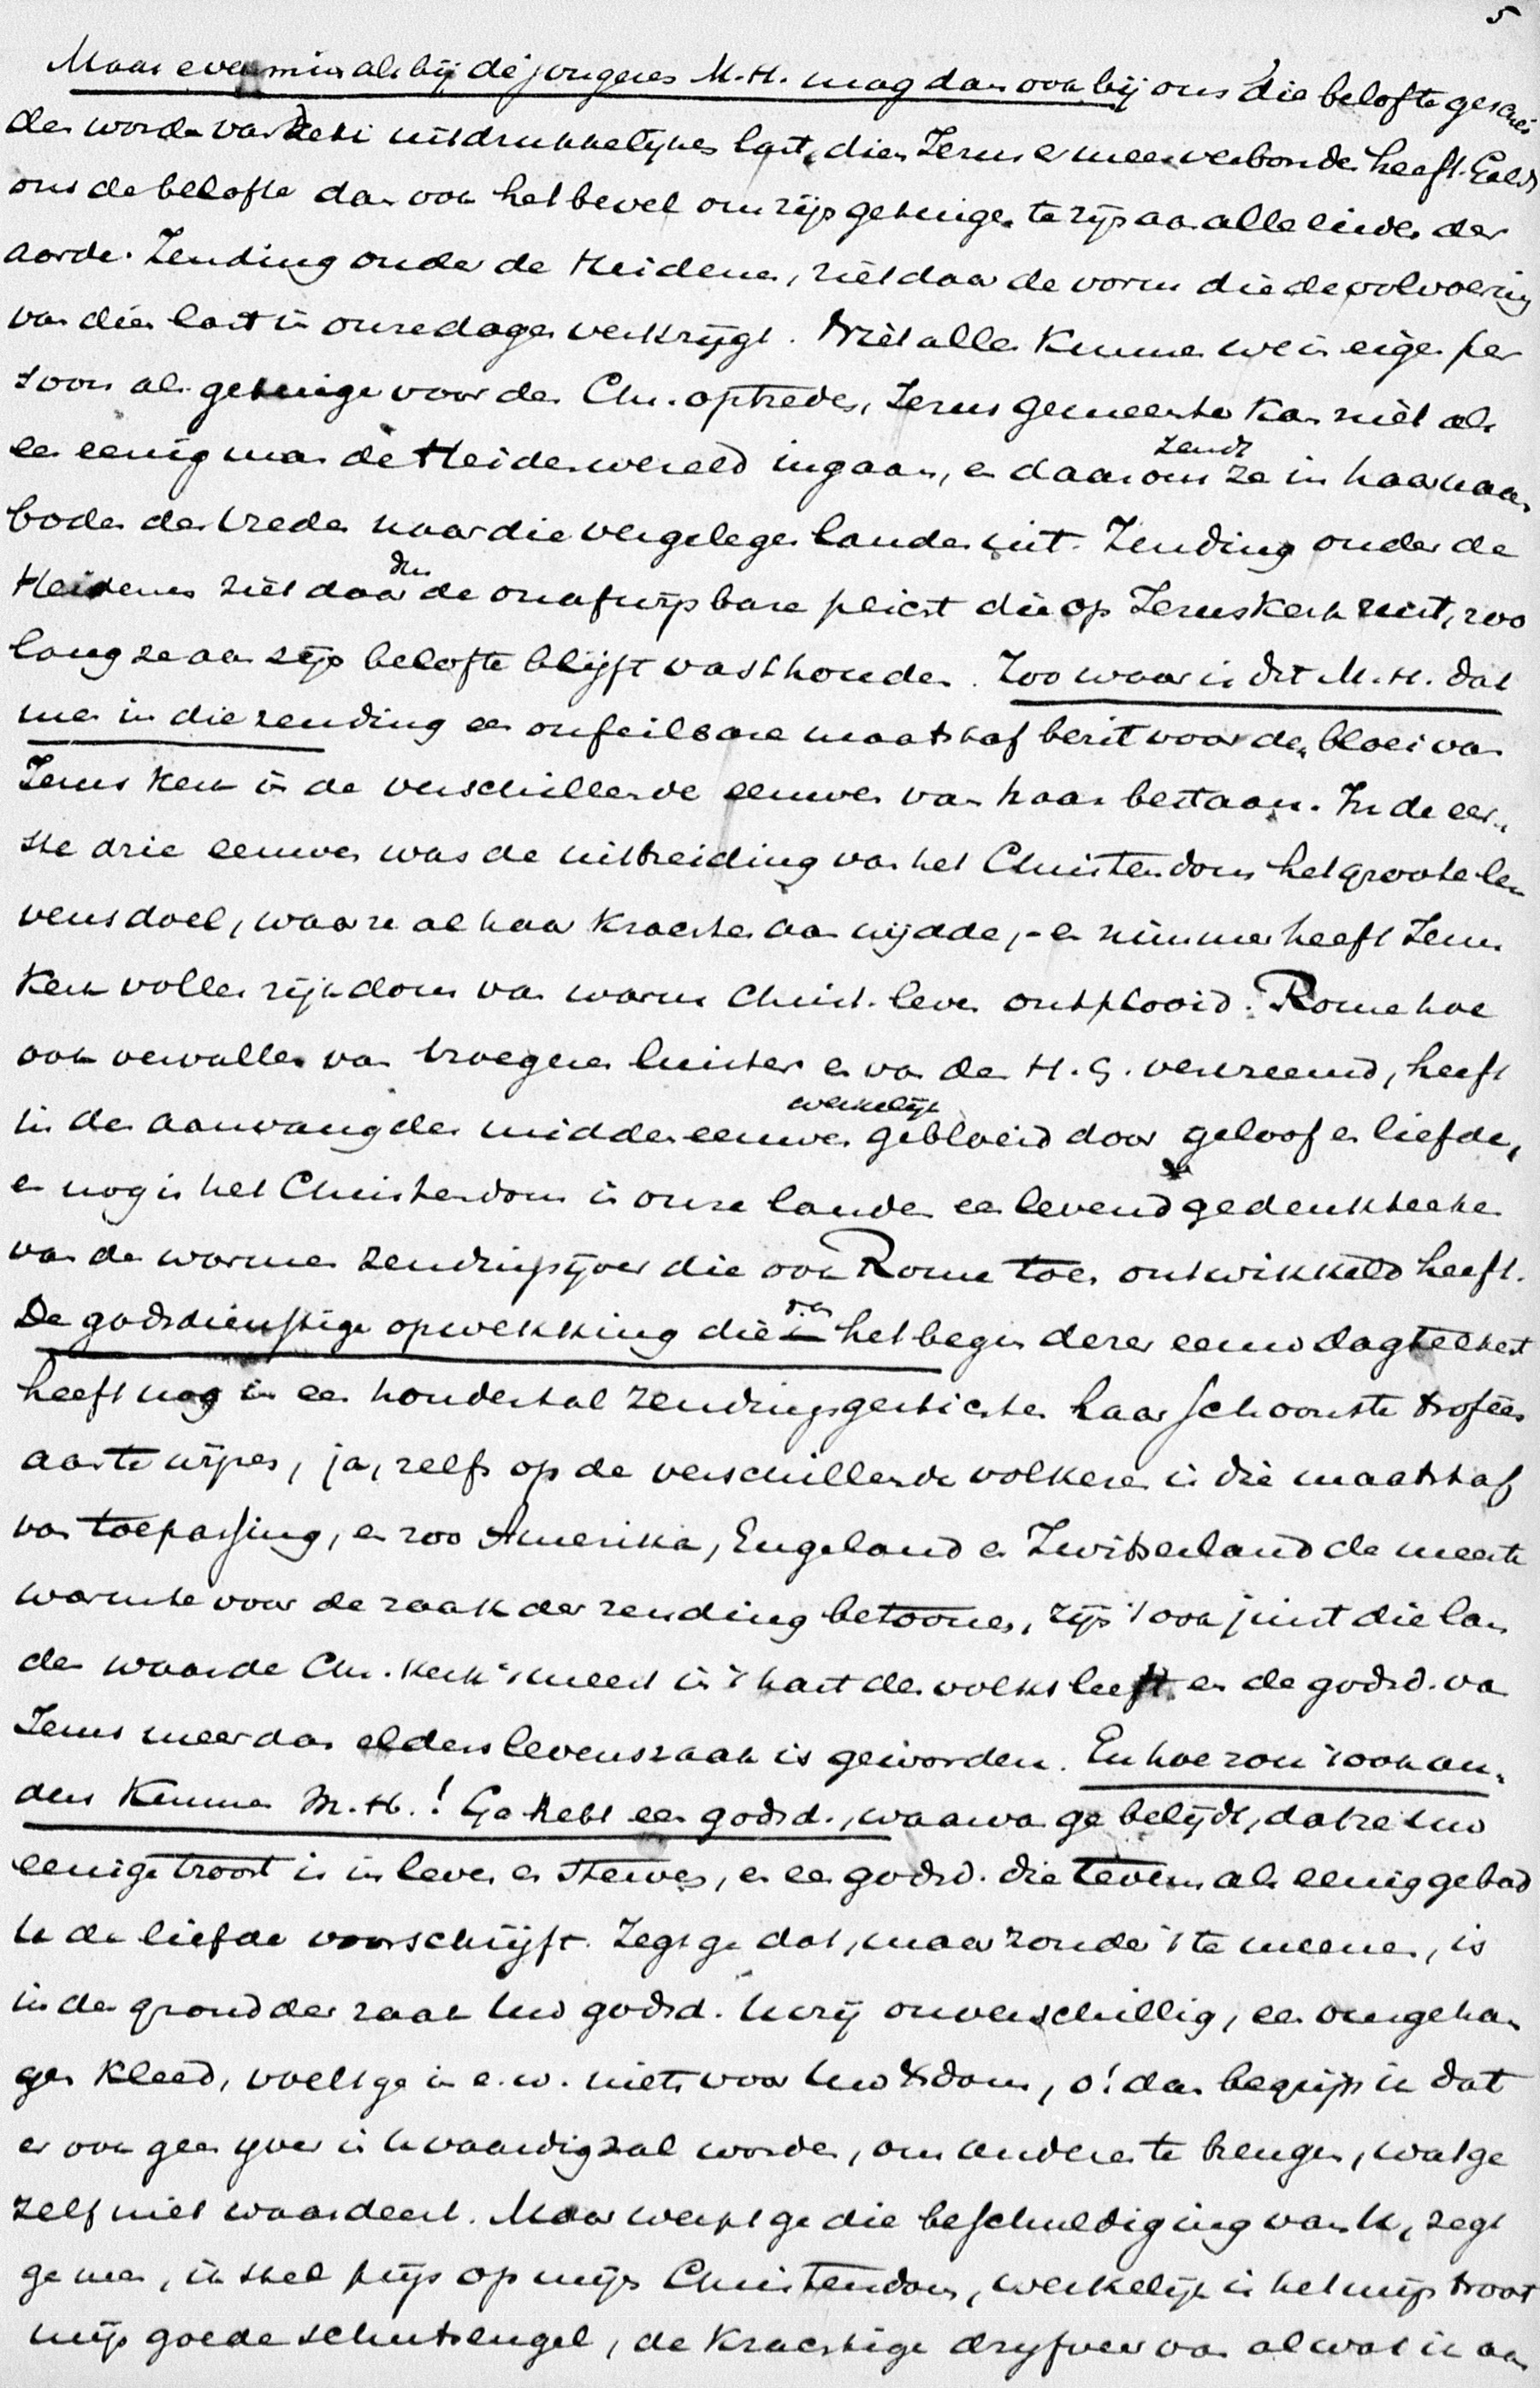 5
Maar evenmin als bij de jongeren M.H. mag dan ook bij ons die belofte geschei
den worden van den uitdrukkelijken last, dien Jezus er mee verbonden heeft. Geldt
ons de belofte dan ook het bevel om zijn getuigen te zijn aan alle einden der
aarde. Zending onder de Heidenen, ziet daar de vorm die de volvoering
van dien last in onze dagen verkrijgt. Niet allen kunnen we in eigen per
soon als getuige voor den Chr. optreden, Jezus gemeente kan niet als
een eenig man de Heidenwereld ingaan, en daarom zendt ze in haar naam
boden des vredes naar die vergelegen landen uit. Zending onder de
Heidenen ziet daar dus de onafwijsbare plicht die op Jezus Kerk rust, zoo
lang ze aan zijn belofte blijft vasthouden. Zoo waar is dit M.H. dat
men in die zending een onfeilbare maatstaf bezit voor den bloei van
Jezus kerk in de verschillende eeuwen van haar bestaan. In de eer
ste drie eeuwen was de uitbreiding van het Christendom het groote le
vensdoel, waar ze al haar krachten aan wijdde, - en nimmer heeft Jezus
Kerk voller rijkdom van warm Christ. leven ontplooid. Rome hoe
ook vervallen van vroegeren luister en van den H. G. vervreemd, heeft
in den aanvang der middeneeuwen werkelijk gebloeid door geloof en liefde,
en nog is het Christendom in onze landen een levend gedenkteeken
van de warmen zendingsijver die ook Rome toen ontwikkeld heeft.
De godsdienstige opwekking die van het begin dezer eeuw dagteekent
heeft nog in een hondertal zendingsgestichten haar schoonste trofeën
aan te wijzen, ja, zelfs op de verschillende volkeren is die maatstaf
van toepassing, en zoo Amerika, Engeland en Zwitserland de meeste
warmte voor de zaak der zending betoonen, zijn 't ook juist die lan
den waar de Chr. kerk 't meest in 't hart des volks leeft en de godsd. van
Jezus meer dan elders levenszaak is geworden. En hoe zou 't ook an
ders kunnen M.H.! Ge hebt een godsd., waarvan ge belijdt, dat ze uw
eenige troost is in leven en sterven, en een godsd. die tevens als eenig gebod
U de liefde voorschrijft. Zegt ge dat, maar zonder 't te meenen, is
in den grond der zaak uw godsd. U vrij onverschillig, een omgehan
gen kleed, voelt ge in e.w. niets voor uw Xsdom, o! dan begrijp ik dat
er ook geen ijver in U vaardig zal worden, om anderen te brengen, wat ge
zelf niet waardeert. Maar werpt ge die beschuldiging van U, zegt
ge neen, ik stel prijs op mijn Christendom, werkelijk is het mijn troost
mijn goede schutsengel, de krachtige drijfveer van al wat ik aan